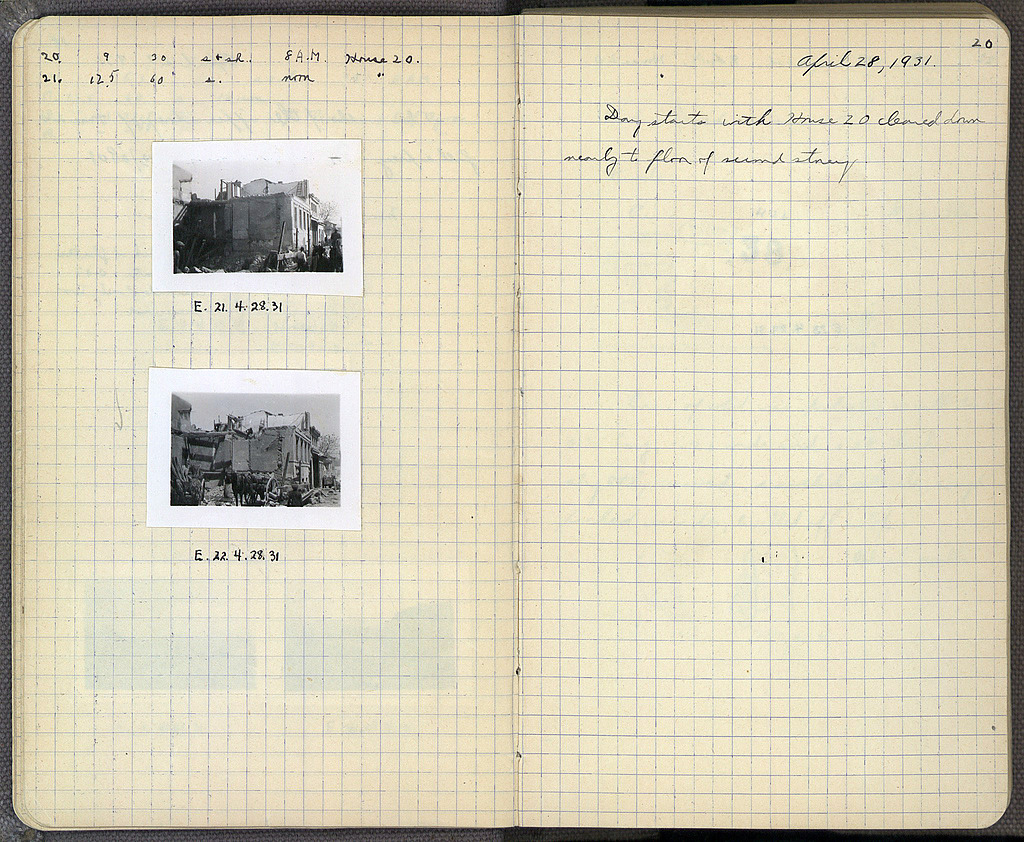 20. 9 30 s + sh. 8 A.M. House 20.
21. 12.5 60 s. noon "
E. 21. 4. 28. 31
E. 22. 4. 28. 31
20
April 28, 1931.
Day starts with House 20 cleaned down
nearly to floor of second storey